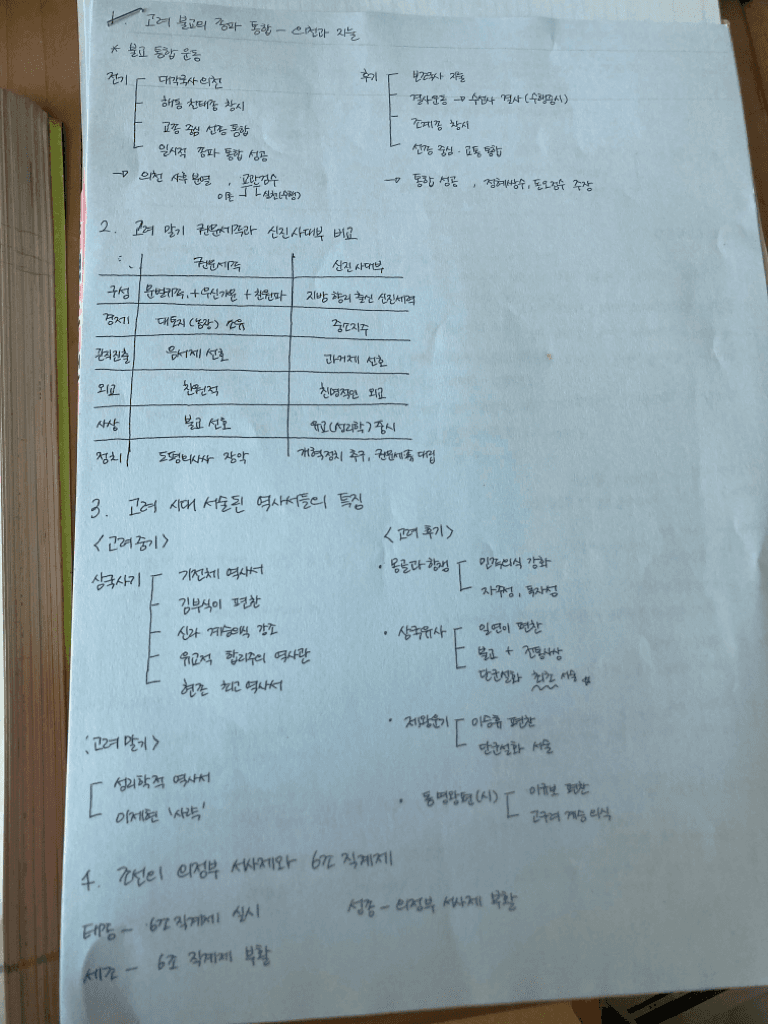 1. 고려 불교의 종파 통합 - 의천과 지눌
* 불교 통합 운동
전기
대각국사 의천
해동 천태종 창시
교종 중심 선종 통합
일시적 종파 통합 성공
→ 의천 사후 분열, 교관겸수
이론 실천(수행)
후기
보조국사 지눌
결사운동 → 수선사 결사 (수행중시)
조계종 창시
선종 중심 · 교종 통합
→ 통합 성공, 정혜쌍수, 돈오점수 주장
2. 고려 말기 권문세족과 신진사대부 비교
권문세족 신진사대부
구성 문벌귀족 + 무신가문 + 친원파 지방 향리 출신 신진세력
경제 대토지(농장) 소유 중소지주
관직진출 음서제 선호 과거제 선호
외교 친원적 친명적인 외교
사상 불교 선호 유교(성리학) 중시
정치 도평의사사 장악 개혁정치 추구, 권문세족 대립
3. 고려 시대 서술된 역사서들의 특징
<고려 중기>
삼국사기
기전체 역사서
김부식이 편찬
신라 계승의식 강조
유교적 합리주의 역사관
현존 최고 역사서
<고려 후기>
· 몽골과 항쟁
민족의식 강화
자주성, 독자성
· 삼국유사
일연이 편찬
불교 + 전통사상
단군설화 최초 서술 ☆
· 제왕운기
이승휴 편찬
단군설화 서술
· 동명왕편(시)
이규보 편찬
고구려 계승 의식
<고려 말기>
성리학적 역사서
이제현 '사략'
4. 조선의 의정부 서사제와 6조 직계제
태종 - 6조 직계제 실시
성종 - 의정부 서사제 부활
세조 - 6조 직계제 부활